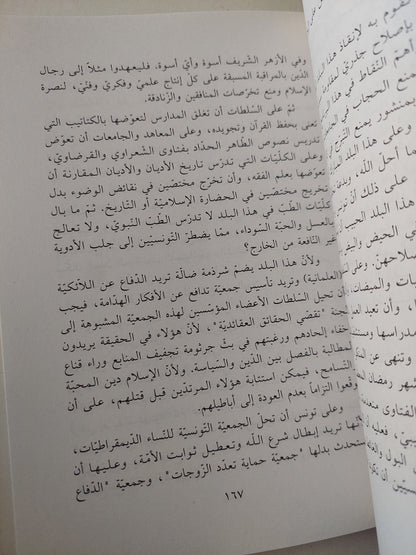 وفي الأزهر الشّريف أسوة وأيّ أسوة. فليعهدوا مثلاً إلى رجال
الدّين بالمراقبة المسبقة على كلّ إنتاج علميّ وفكريّ وفنّيّ، لنصرة
الإسلام ومنع تخرّصات المنافقين والزّنادقة.
ثمّ على السّلطات أن تغلق المدارس لتعوّضها بالكتاتيب التي
تعنى بحفظ القرآن وتجويده، وعلى المعاهد والجامعات أن تعوّض
تدريس نصوص الطّاهر الحدّاد بفتاوى الشّعراوي والقرضاوي،
وعلى الكلّيّات التي تدرّس تاريخ الأديان والأديان المقارنة أن
تعوّضها بعلم الفقه، وأن تخرّج مختصّين في نقائض الوضوء بدل
تخريج مختصّين في الحضارة الإسلاميّة أو التّاريخ. ثمّ ما بال
كلّيّات الطّبّ في هذا البلد لا تدرّس الطّبّ النّبويّ، ولا تعالج
بالعسل والحبّة السّوداء، ممّا يضطرّ التّونسيّين إلى جلب الأدوية
غير النّافعة من الخارج؟
ولأنّ هذا البلد يضمّ شرذمة ضالّة تريد الدّفاع عن اللاّئكيّة
(العلمانية) وتريد تأسيس جمعيّة تدافع عن الأفكار الهدّامة، فيجب
أن تحيل السّلطات الأعضاء المؤسّسين لهذه الجمعيّة المشبوهة إلى
لجنة "تقصّي الحقائق العقائديّة"، لأنّ هؤلاء في الحقيقة يريدون
إخفاء إلحادهم ورغبتهم في بثّ جرثومة تجفيف المنابع وراء قناع
المطالبة بالفصل بين الدّين والسّياسة. ولأنّ الإسلام دين المحبّة
والتّسامح، فيمكن استتابة هؤلاء المرتدّين قبل قتلهم، على أن
يوقّعوا التزاماً بعدم العودة إلى أباطيلهم.
وعلى تونس أن تحلّ الجمعيّة التّونسيّة للنّساء الدّيمقراطيّات،
لأنّها تريد إبطال شرع اللّه وتعطيل ثوابت الأمّة، وعليها أن
تستحدث بدلها "جمعيّة حماية تعدّد الزّوجات"، وجمعيّة "الدّفاع
١٦٧